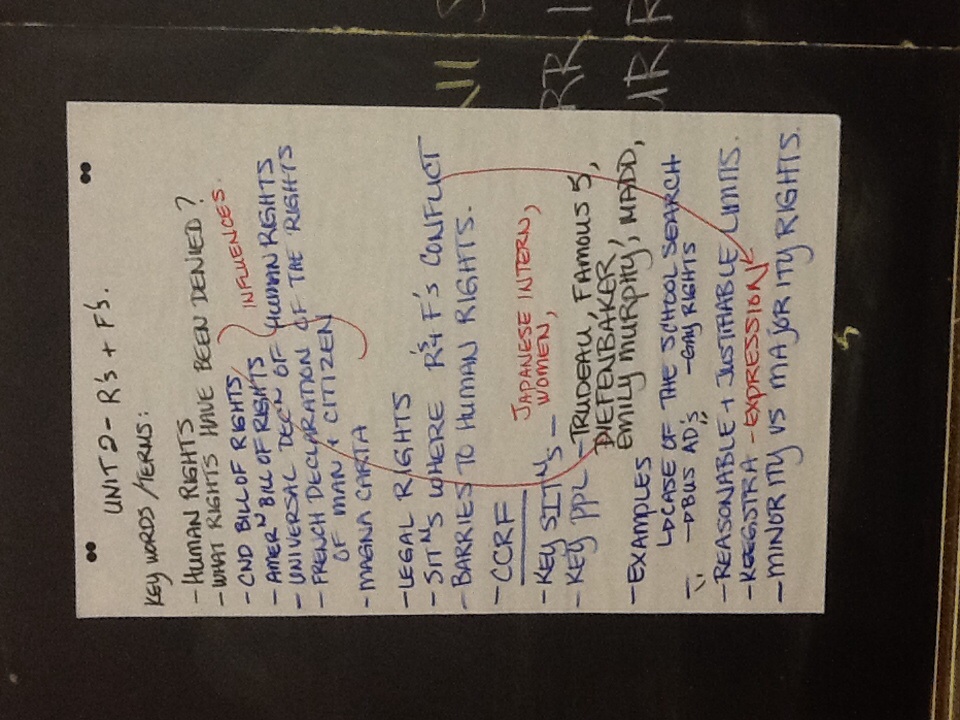 UNIT 2 - R's + F's.
KEY WORDS / TERMS:
- HUMAN RIGHTS
- WHAT RIGHTS HAVE BEEN DENIED?
- CND BILL OF RIGHTS
INFLUENCES.
- AMERN BILL OF RIGHTS
- UNIVERSAL DECN OF HUMAN RIGHTS
- FRENCH DECLARATION OF THE RIGHTS
OF MAN + CITIZEN
- MAGNA CARTA
- LEGAL RIGHTS
- SITNS WHERE R's + F's CONFLICT
- BARRIES TO HUMAN RIGHTS.
- CCRF
- KEY SITNS - JAPANESE INTERN,
WOMEN,
- KEY PPL - TRUDEAU, FAMOUS 5,
DIEFFENBAKER,
EMILY MURPHY, MADD,
- EXAMPLES
CASE OF THE SCHOOL SEARCH
- BUS AD's - GAY RIGHTS
- " "
- REASONABLE + JUSTIFIABLE LIMITS.
- KEEGSTRA - EXPRESSION
- MINORITY VS MAJORITY RIGHTS.